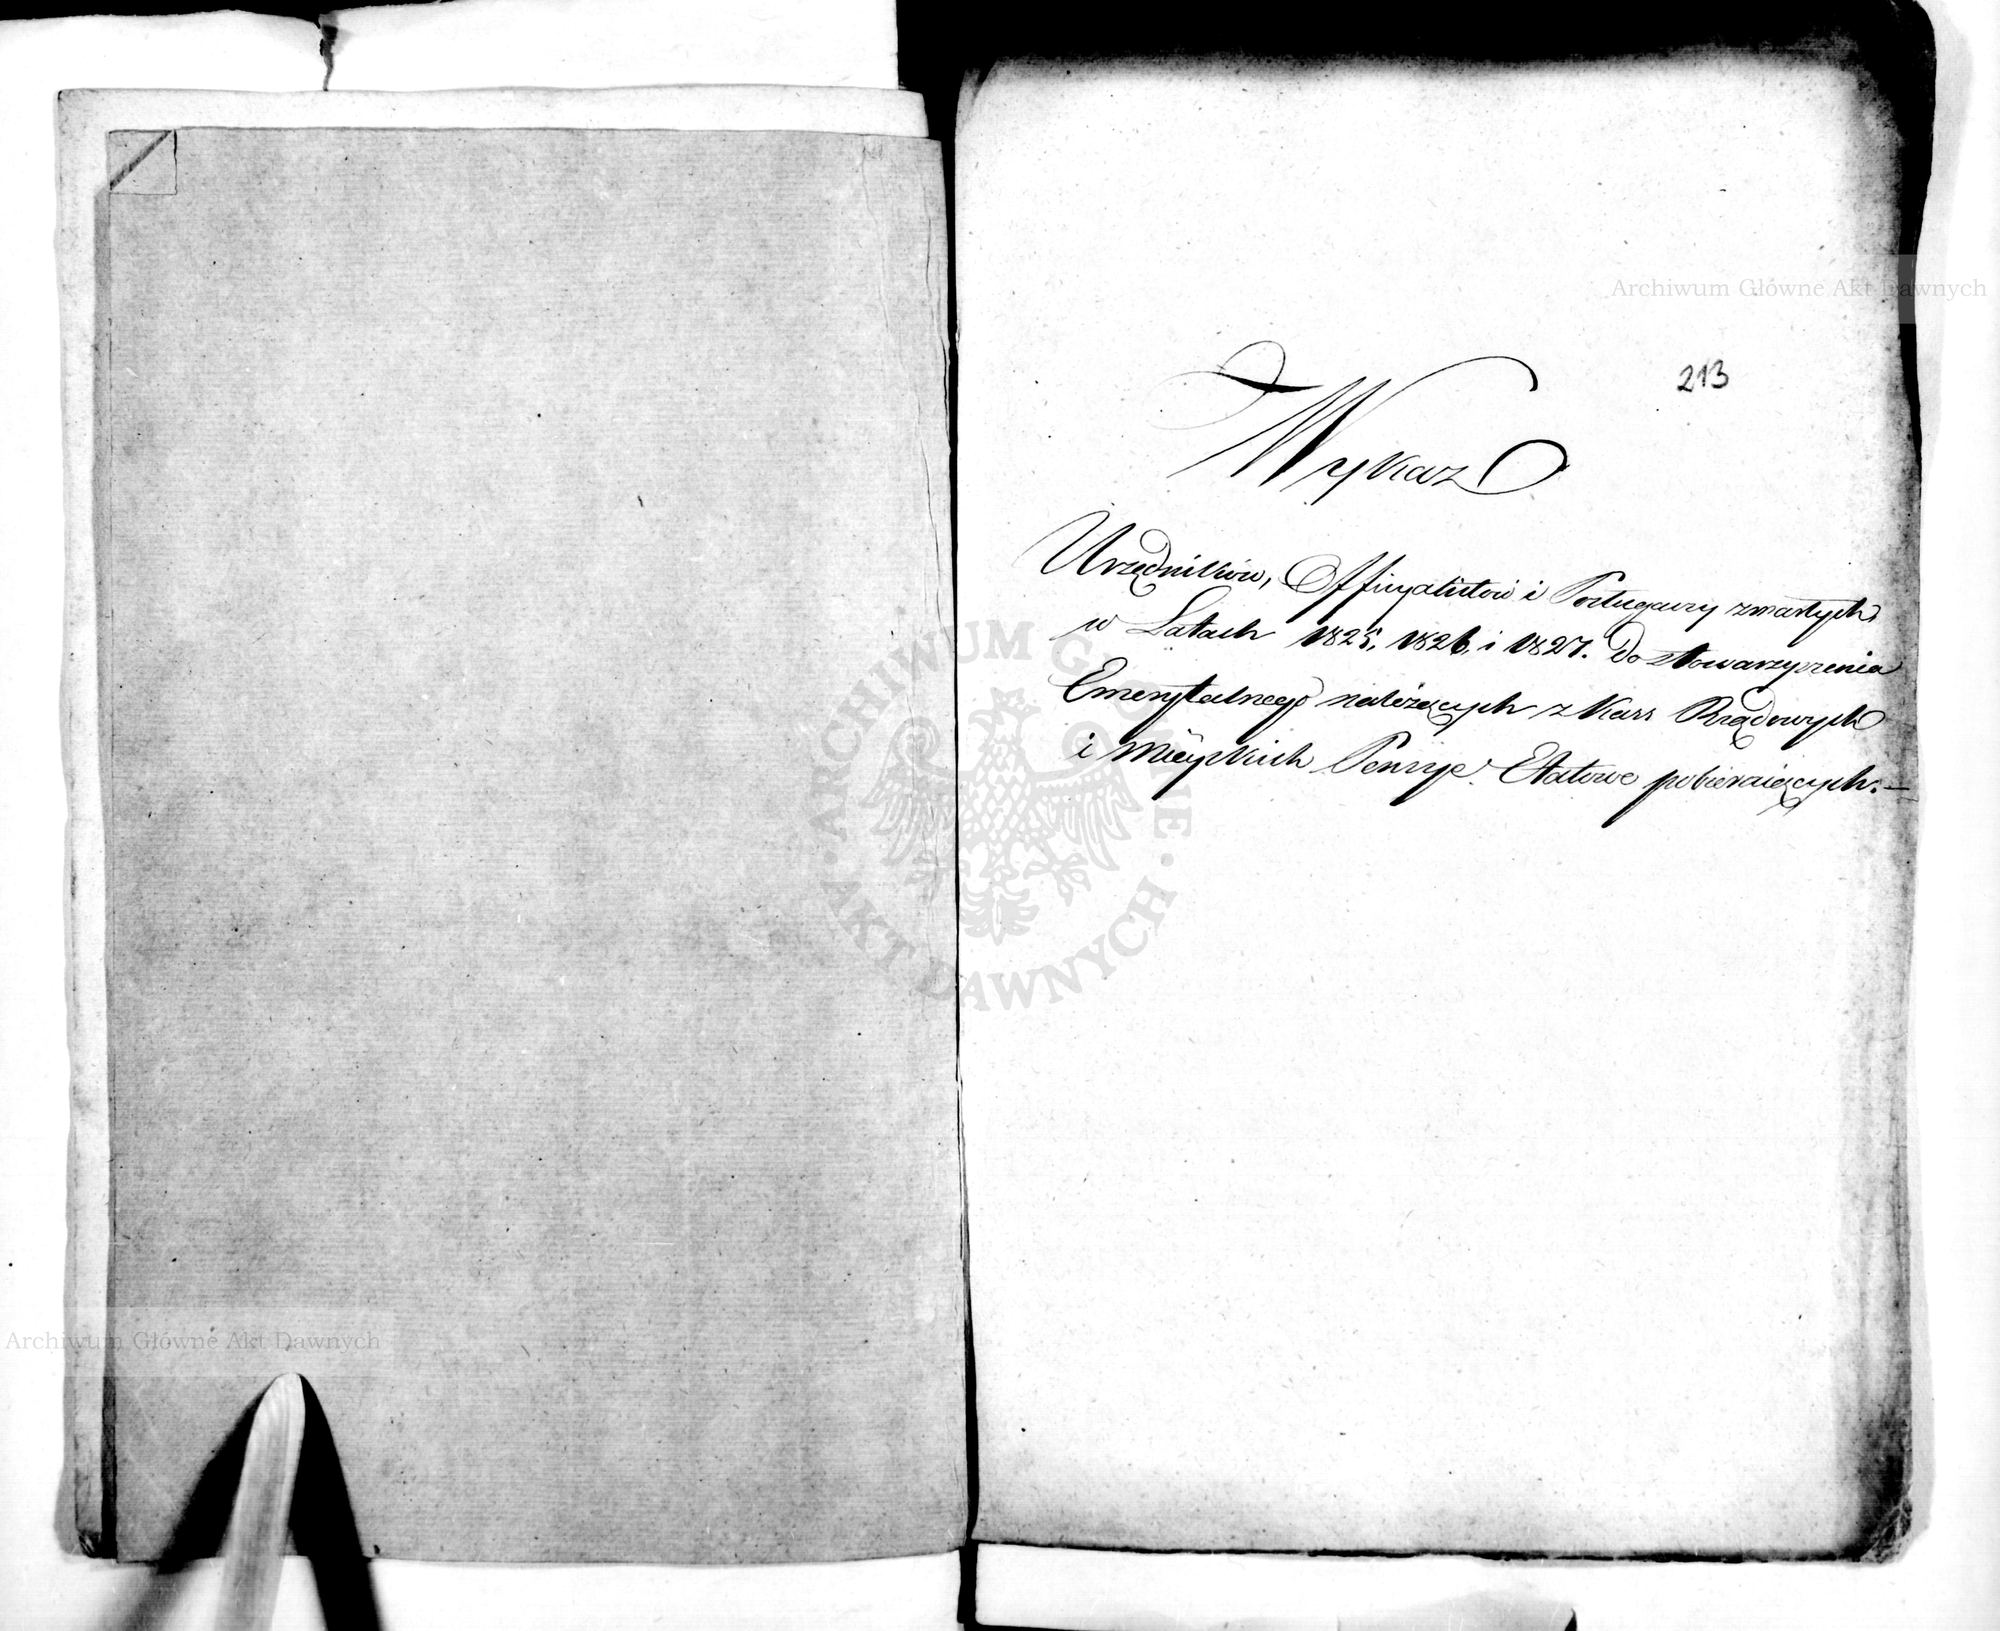 213
Wykaz
Urzędników, Officyalistów i Posługaczy zmarłych
w Latach 1825, 1826, i 1827. do stowarzyszenia
Emerytalnego należących z Kass Rządowych
i Mieyskich Pensye Etatowe pobieraiących.—
Archiwum Główne Akt Dawnych
ARCHIWUM GŁÓWNE · AKT DAWNYCH ·
Archiwum Główne Akt Dawnych